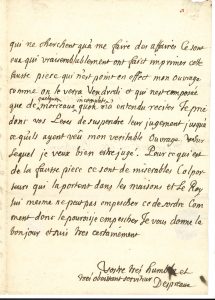 qui ne cherchent qu'à me faire des affaires. Ce sont
eux qui vraisemblablement ont fait imprimer cette
fausse piece qui n'est point en effect mon ouvrage
comme on le verra Vendredi et qui n'est composée
quelques incomplets
que de morceaux qu'on m'a entendu reciter. Je prie
donc vos de suspendre leur jugement jusqu'à
ce qu'ils ayent veü mon veritable Ouvrage. sur
lequel je veux bien estre jugé. Pour ce qui est
de la fausse piece ce sont de miserables Colpor
teurs qui la portent dans les maisons et Le Roy
lui mesme ne peut pas empescher ce desordre Com
ment donc le pourrois-je empescher. Je vous donne le
bonjour et suis tres certainement
Vostre tres humble et
tres obeissant serviteur Despreaux